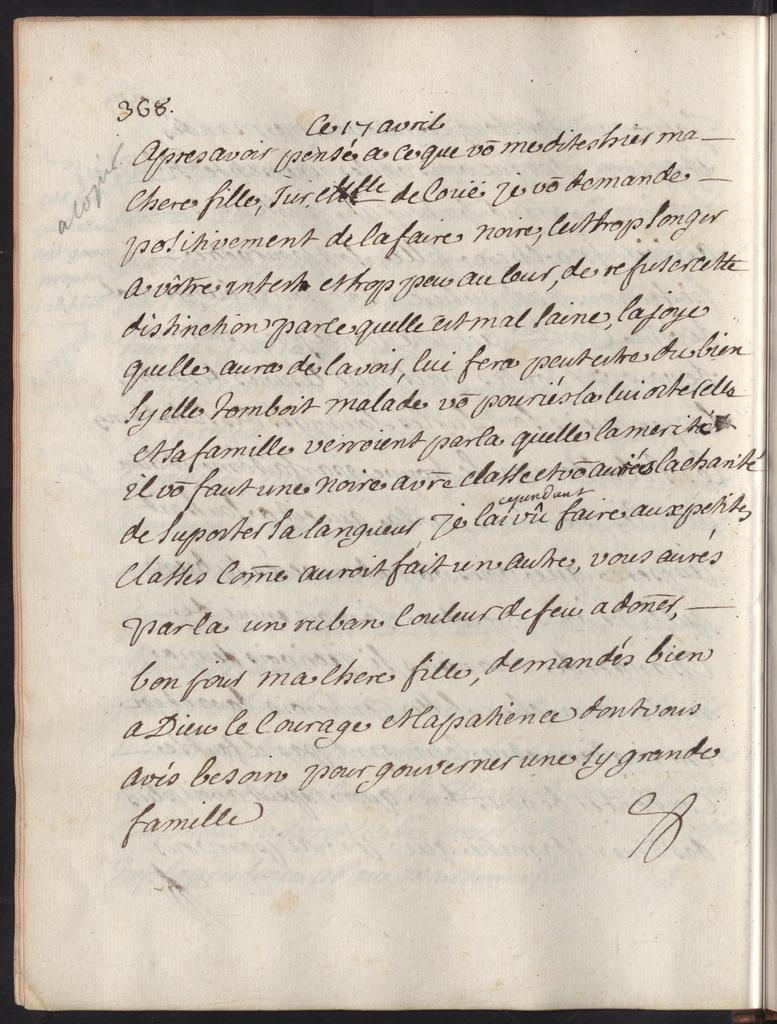 368.
Ce 17 avril
a copier
Apres avoir pensé a ce que vō me dites hier ma
chere fille, sur elle de Coüé je vō demande
positivement de la faire noire, cest trop songer
a vôtre interest et trop peu au leur, de refuser cette
distinction parce quelle est mal saine, la joye
quelle aura de lavoir, lui fera peut estre du bien
sy elle tomboit malade vō pouriés la lui oster elle
et sa famille verroient par la quelle la merité
il vō faut une noire a vr̄e classe et vō aurés la charité
de suporter sa langueur, je lai cependant vû faire aux petites
classes com̄e auroit fait un autre, vous aurés
par la un ruban couleur de feu a don̄er,
bon jour ma chere fille, demandés bien
a Dieu le courage et la patience dont vous
avés besoin pour gouverner une sy grande
famille